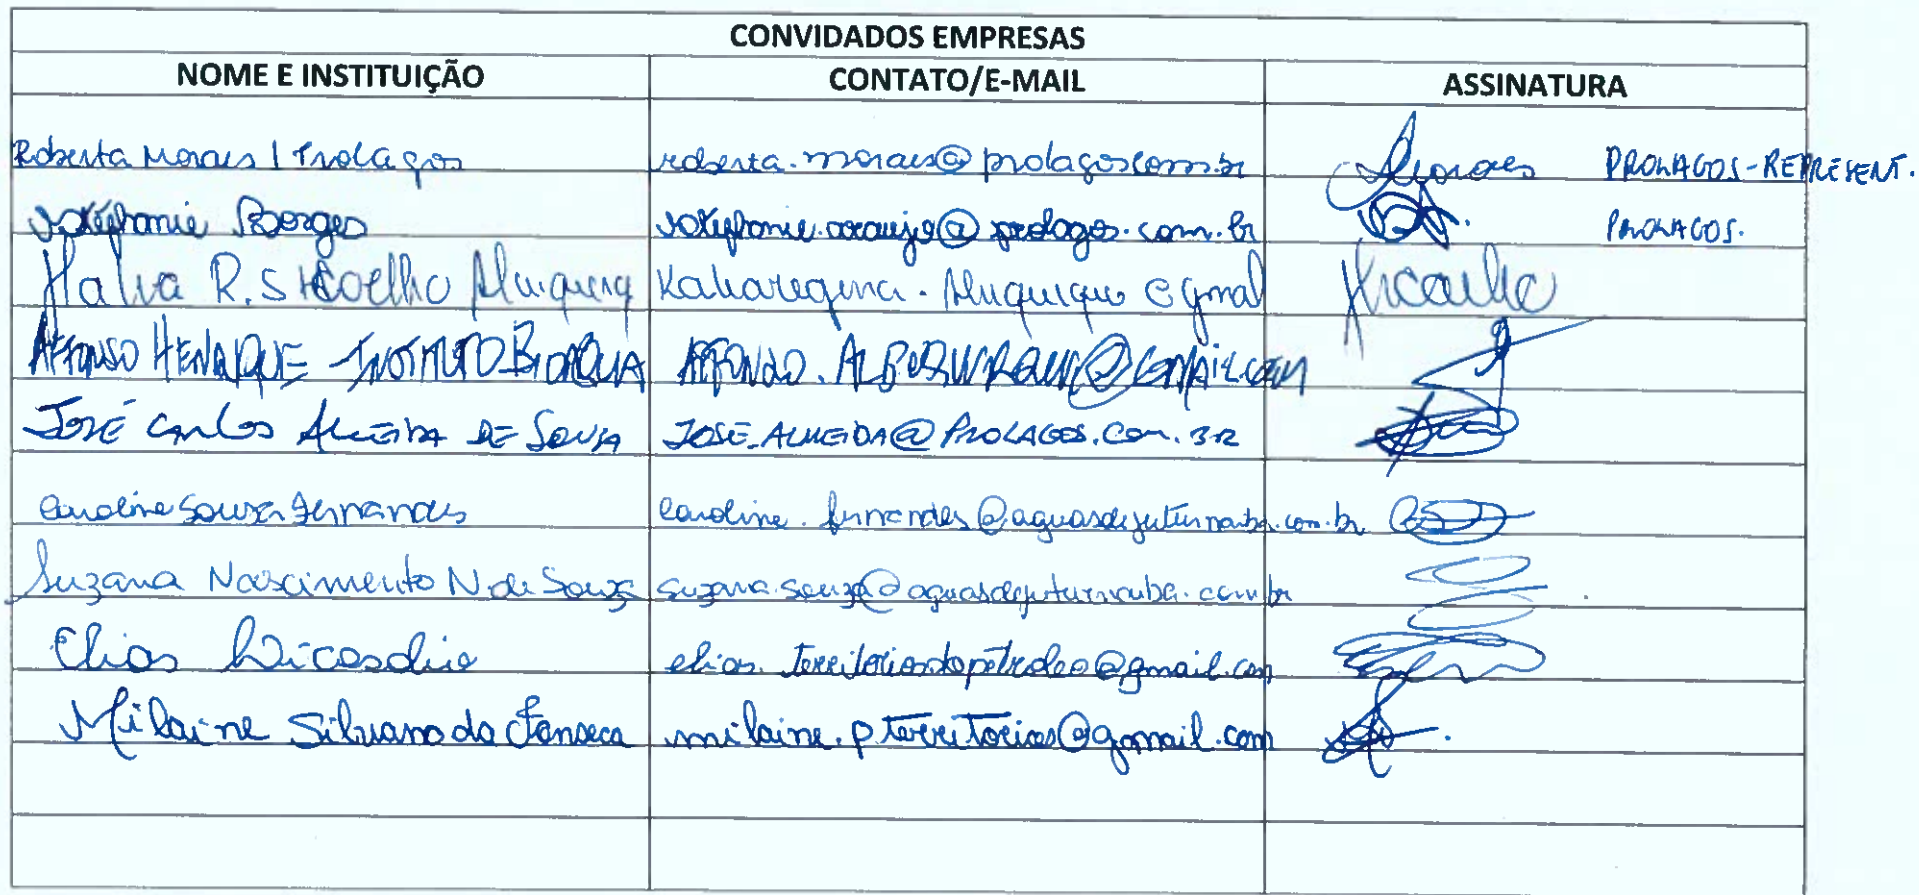 CONVIDADOS EMPRESAS
NOME E INSTITUIÇÃO CONTATO/E-MAIL ASSINATURA
Roberta Moraes | Prolagos roberta.moraes@prolagos.com.br Moraes PROLAGOS-REPRESENT.
Stéphanie Borges stephanie.araujo@prolagos.com.br PROLAGOS.
R. S. Coelho
AFFONSO HENRIQUE - INSTITUTO BIOAQUA
JOSÉ CARLOS ALMEIDA DE SOUSA JOSE.ALMEIDA@PROLAGOS.COM.BR
Caroline Souza Fernandes caroline.fernandes@aguasdejuturnaiba.com.br
Suzana Nascimento N. de Souza suzana.souza@aguasdejuturnaiba.com.br
Elias elias.territoriosdopetroleo@gmail.com
Milaine Silvano da Fonseca milaine.pterritorios@gmail.com